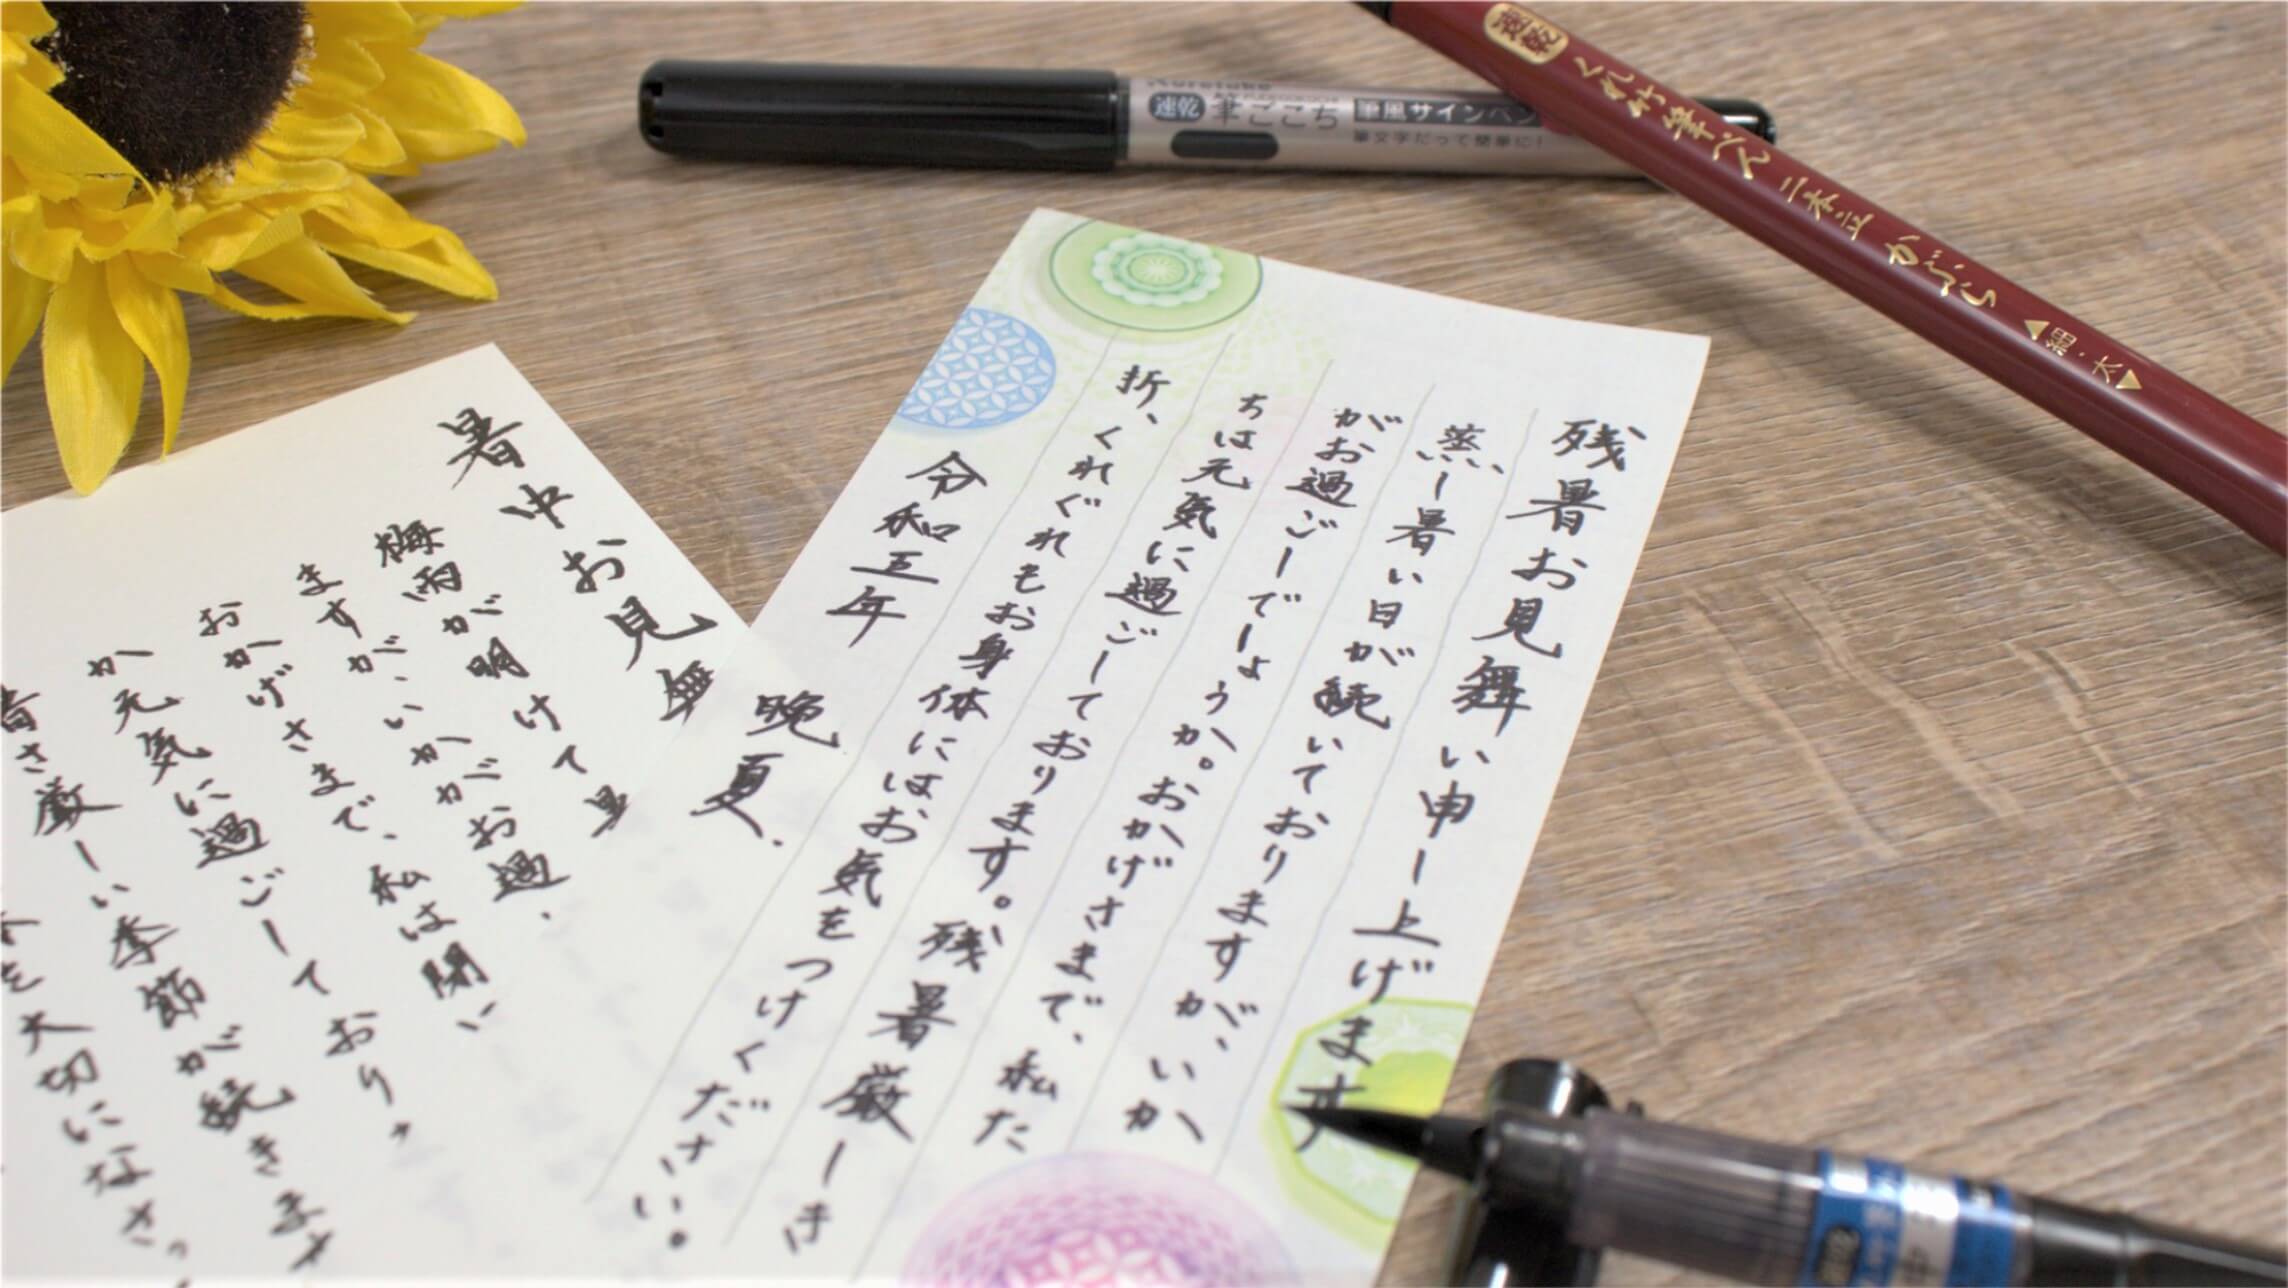 残暑お見舞い申し上げます
蒸し暑い日が続いておりますが、いか
がお過ごしでしょうか。おかげさまで、私た
ちは元気に過ごしております。残暑厳しき
折、くれぐれもお身体にはお気をつけください。
令和五年 晩夏
暑中お見舞
梅雨が明けて
ますが、いかがお過
おかげさまで、私は
か元気に過ごしており
暑さ厳しい季節が続きます
を大切になさっ
速乾 筆ごこち 筆風サインペン
筆文字だって簡単に!
速乾 くれ竹筆ぺん 二本立 かぶら 細・太